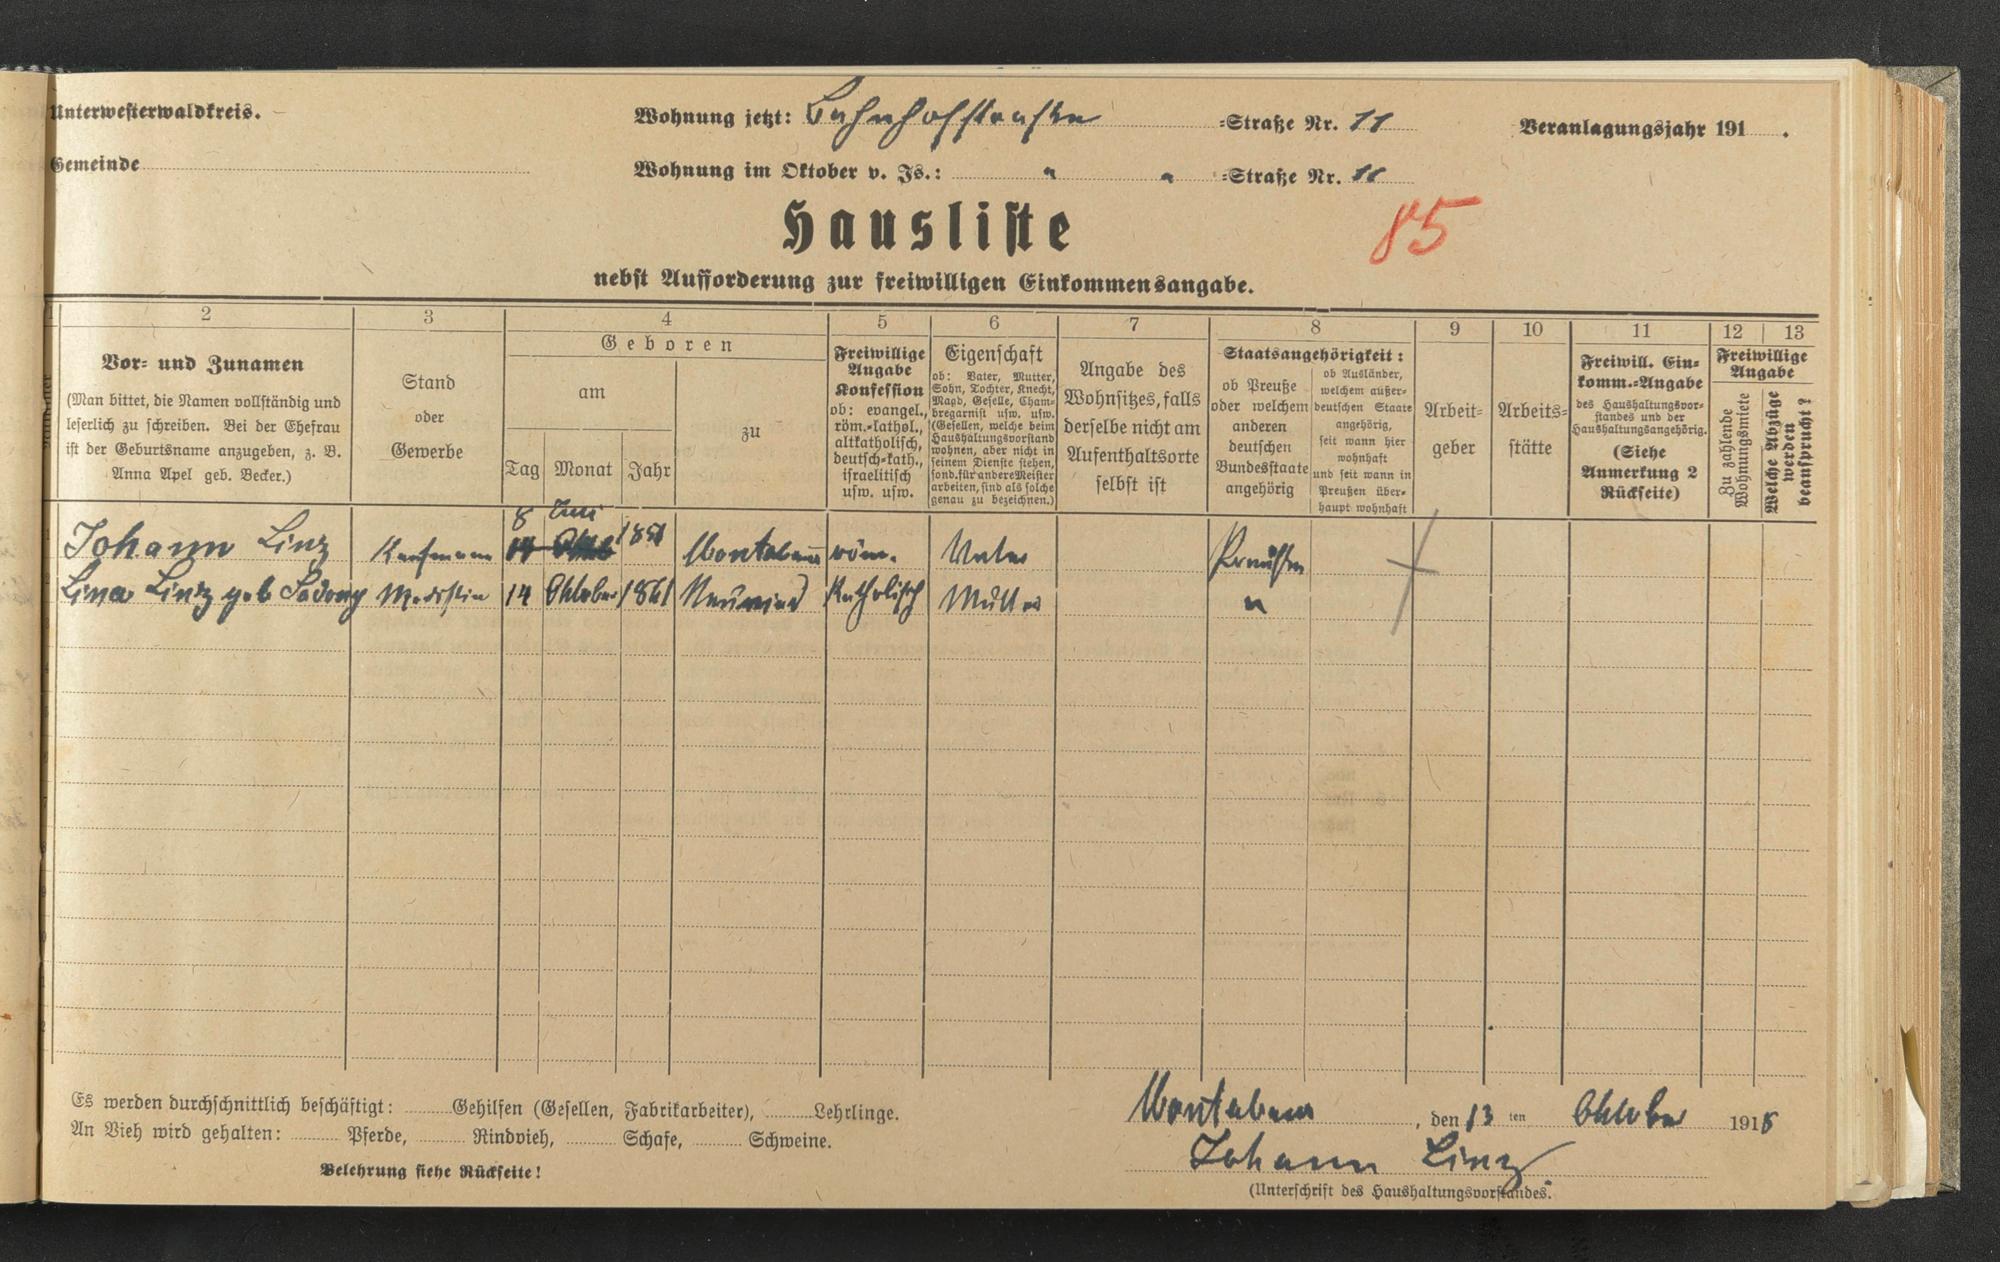 Unterwesterwaldkreis.
Wohnung jetzt: Bahnhofstraße =Straße Nr. 11
Veranlagungsjahr 191 .
Gemeinde
Wohnung im Oktober v. Js.: " " =Straße Nr. 11
Hausliste
85
nebst Aufforderung zur freiwilligen Einkommensangabe.
1 2 3 4 5 6 7 8 9 10 11 12 13
Vor- und Zunamen
(Man bittet, die Namen vollständig und
leserlich zu schreiben. Bei der Ehefrau
ist der Geburtsname anzugeben, z. B.
Anna Apel geb. Becker.)
Stand
oder
Gewerbe
Geboren
am
Tag Monat Jahr
zu
Freiwillige
Angabe
Konfession
ob: evangel.,
röm.-kathol.,
altkatholisch,
deutsch-kath.,
israelitisch
usw. usw.
Eigenschaft
ob: Vater, Mutter,
Sohn, Tochter, Knecht,
Magd, Geselle, Cham-
bregarnist usw. usw.
(Gesellen, welche beim
Haushaltungsvorstand
wohnen, aber nicht in
seinem Dienste stehen,
sond. für andere Meister
arbeiten, sind als solche
genau zu bezeichnen.)
Angabe des
Wohnsitzes, falls
derselbe nicht am
Aufenthaltsorte
selbst ist
Staatsangehörigkeit:
ob Preuße
oder welchem
anderen
deutschen
Bundesstaate
angehörig
ob Ausländer,
welchem außer-
deutschen Staate
angehörig,
seit wann hier
wohnhaft
und seit wann in
Preußen über-
haupt wohnhaft
Arbeit-
geber
Arbeits-
stätte
Freiwill. Ein-
komm.-Angabe
des Haushaltungsvor-
standes und der
Haushaltungsangehörig.
(Siehe
Anmerkung 2
Rückseite)
Freiwillige
Angabe
Zu zahlende
Wohnungsmiete
Welche Abzüge
werden
beansprucht?
8 Juni
Johann Linz Kaufmann 14 1851 Montabaur röm. Vater Preußen
Lina Linz geb 14 Oktober 1861 Neuwied Katholisch Mutter "
Es werden durchschnittlich beschäftigt: Gehilfen (Gesellen, Fabrikarbeiter), Lehrlinge.
An Vieh wird gehalten: Pferde, Rindvieh, Schafe, Schweine.
Belehrung siehe Rückseite!
Montabaur, den 13 ten Oktober 1915
Johann Linz
(Unterschrift des Haushaltungsvorstandes.